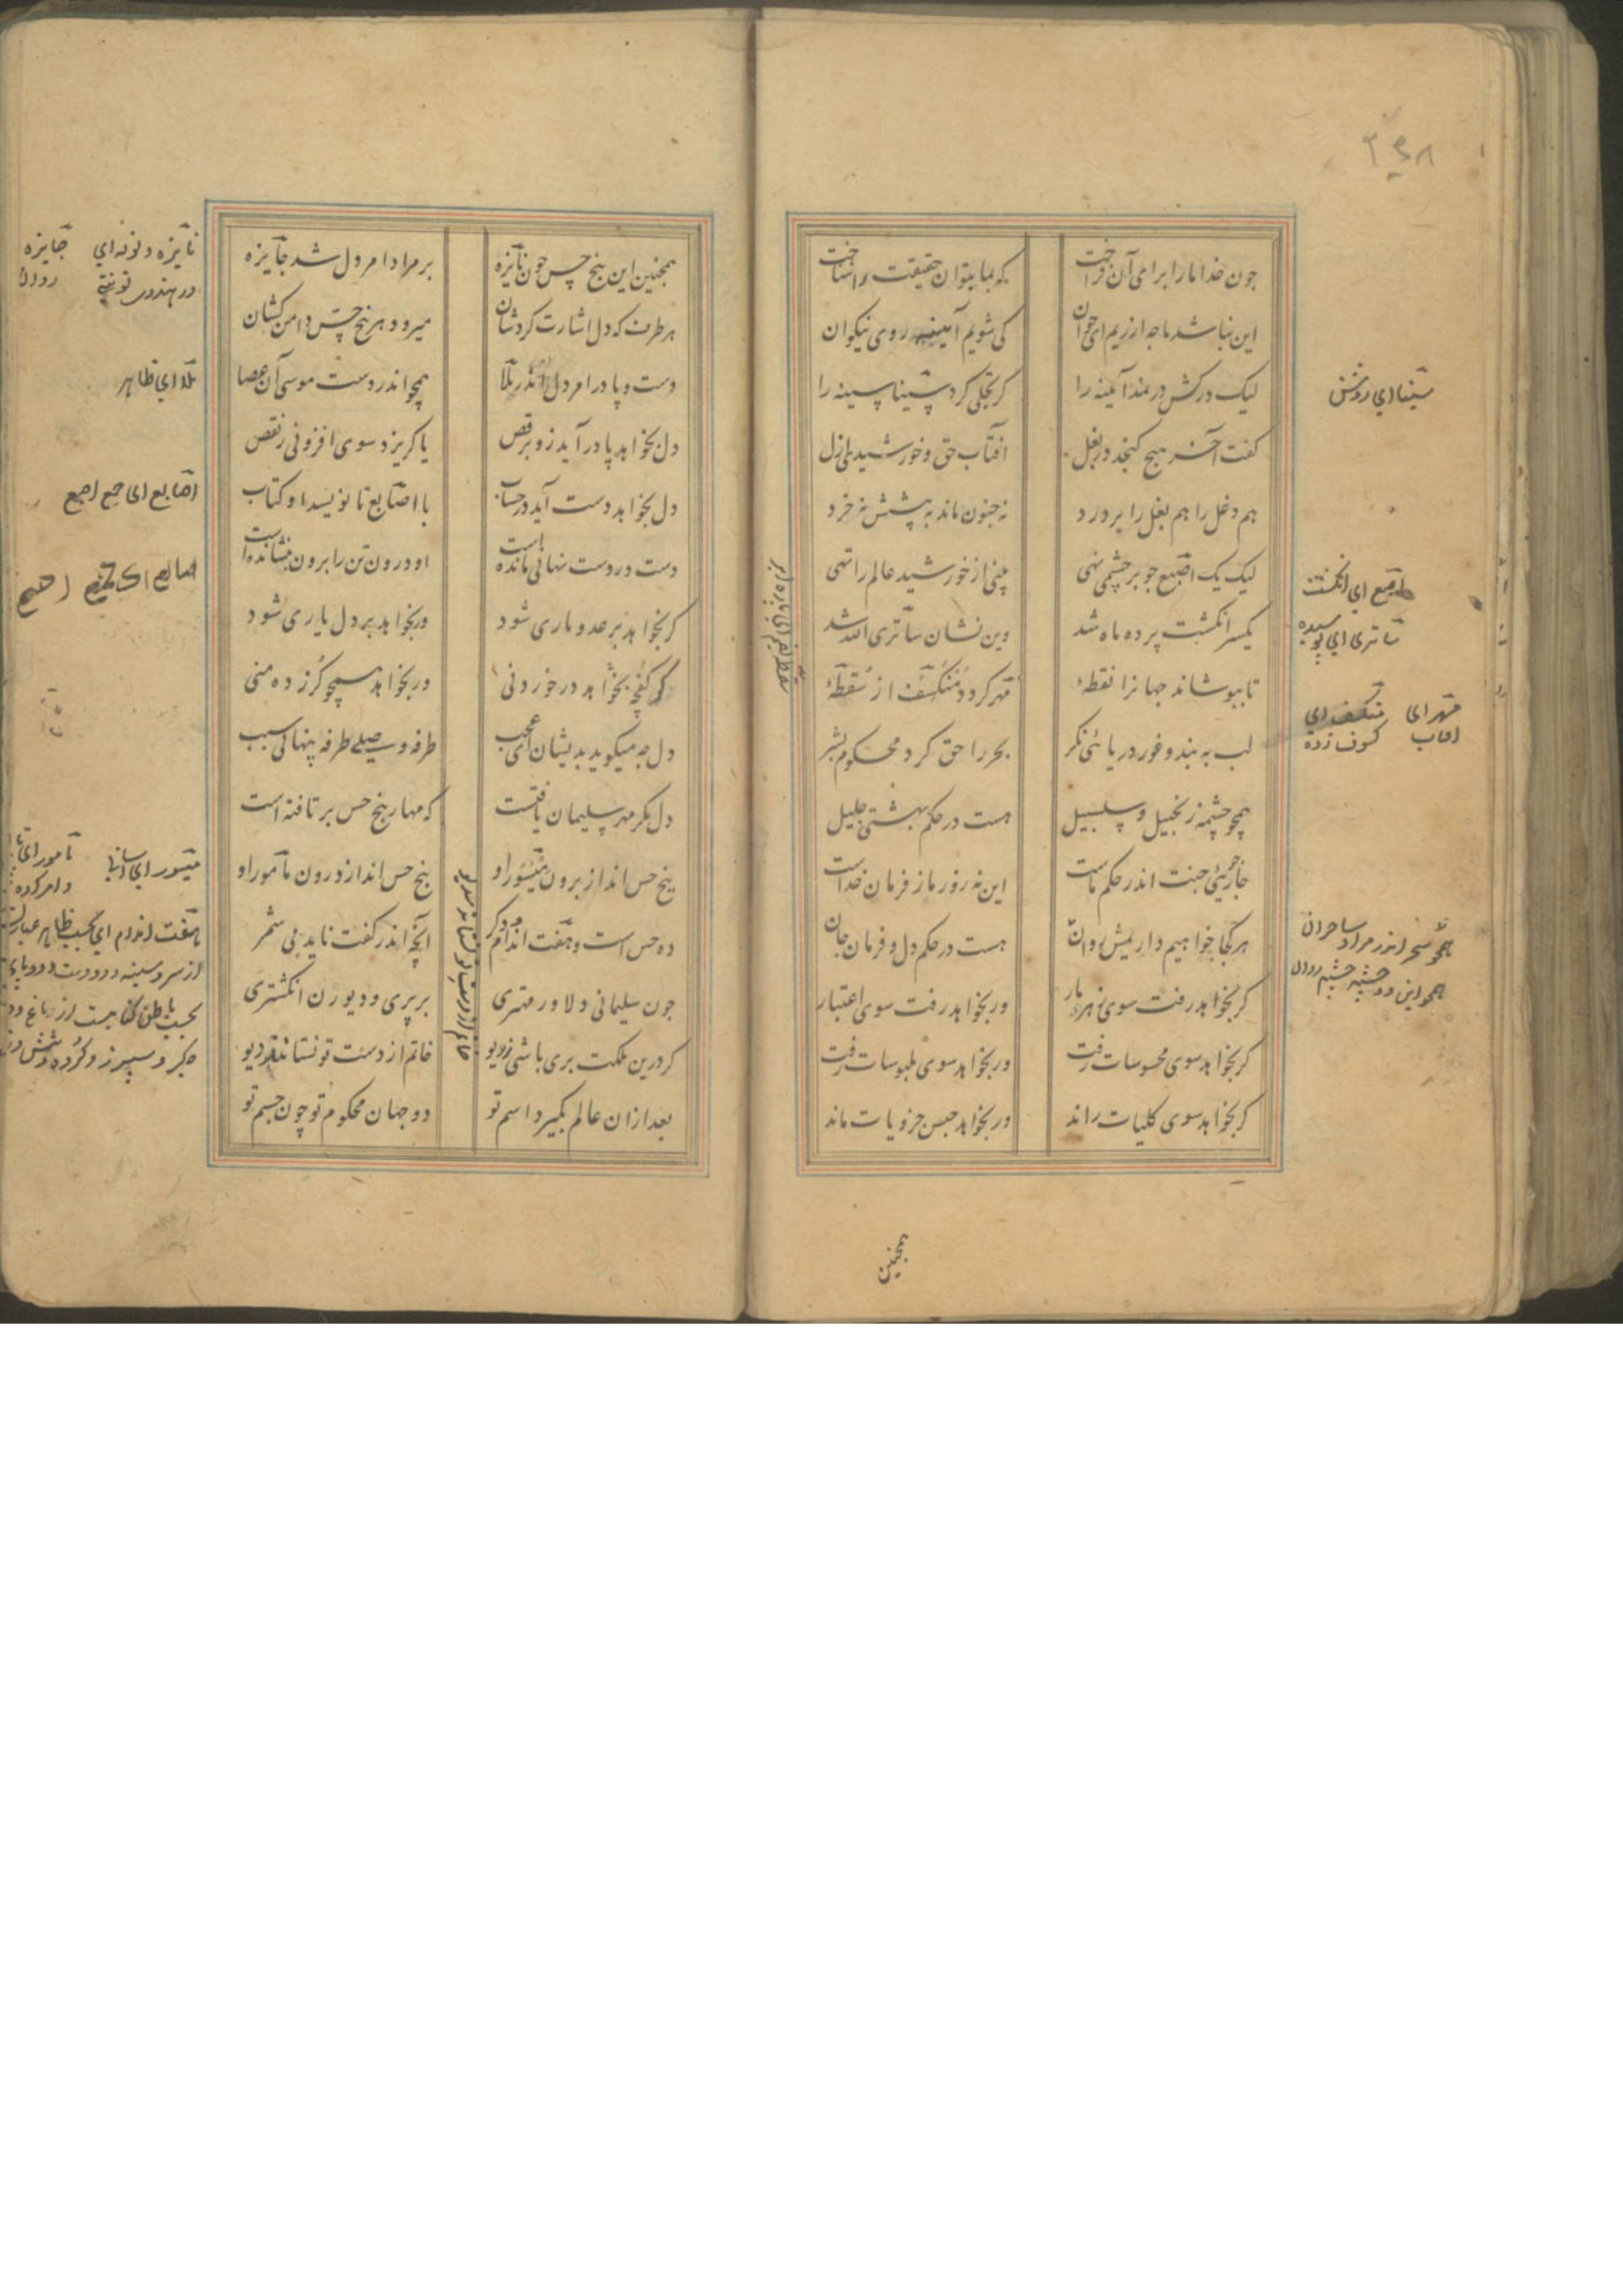 چون خدا ما را برای آن فراخت
که بما بتوان حقیقت را شناخت
این نباشد ما چه ارزیم ای جوان
کی شویم آیینه روی نیکوان
لیک درکش در نمد آئینه را
گر تجلی کرد سینا سینه را
گفت آخر هیچ گنجد در بغل
آفتاب حق و خورشید ازل
هم دغل را هم بغل را بر درد
نه جنون ماند به پیشش نه خرد
لیک یک اصبع چو بر چشمی نهی
بینی از خورشید عالم را تهی
یکسر انگشت پرده ماه شد
وین نشان ساتری الله شد
تا بپوشاند جهانرا نقطهٔ
مهر گردد منکسف از سقطهٔ
لب به بند و غور دریائی نگر
بحر را حق کرد محکوم بشر
همچو چشمه زنجبیل و سلسبیل
هست در حکم بهشتی جلیل
چار جوئی جنت اندر حکم ماست
این نه زور ما ز فرمان خداست
هر کجا خواهیم داریمش روان
همچو سحر اندر مراد ساحران
همچو این دو چشمه چشم روان
هست در حکم دل و فرمان جان
گر بخواهد رفت سوی زهر مار
ور بخواهد رفت سوی اعتبار
گر بخواهد سوی محسوسات رفت
ور بخواهد سوی ملبوسات رفت
گر بخواهد سوی کلیات راند
ور بخواهد حبس جزویات ماند
سینا ای روشن
اصبع ای انگشت
ساتری ای پوشیده
مهر ای آفتاب
منکسف ای کسوف زده
همچنین
همچنین این پنج حس چون نایزه
بر مراد امر دل شد جایزه
هر طرف که دل اشارت کردشان
میرود هر پنج حس دامن کشان
دست و پا در امر دل اندر ملا
همچو اندر دست موسی آن عصا
دل بخواهد پا در آید زو برقص
یا گریزد سوی افزونی ز نقص
دل بخواهد دست آید در حساب
با اصابع تا نویسد او کتاب
دست در دست نهانی مانده است
او درون تن را برون بنشانده است
گر بخواهد بر عدو ماری شود
ور بخواهد بر دل یاری شود
گر بخواهد کفچه در خوردنی
ور بخواهد همچو گرز ده منی
دل چه میگوید بدیشان ای عجب
طرفه وصلی طرفه پنهانی سبب
دل مگر مهر سلیمان یافتست
که مهار پنج حس بر تافته است
پنج حس انداز برون میسور او
پنج حس انداز درون مأمور او
ده حس است و هفت اندام و دگر
آنچه اندر گفت ناید بی شمر
چون سلیمانی دلا در مهتری
بر پری و دیو زن انگشتری
گر درین ملکت بری باشی ز ریو
خاتم از دست تو نستاند دیو
بعد ازان عالم بگیرد اسم تو
دو جهان محکوم تو چون جسم تو
ملا ای ظاهر
اصابع ای جمع اصبع